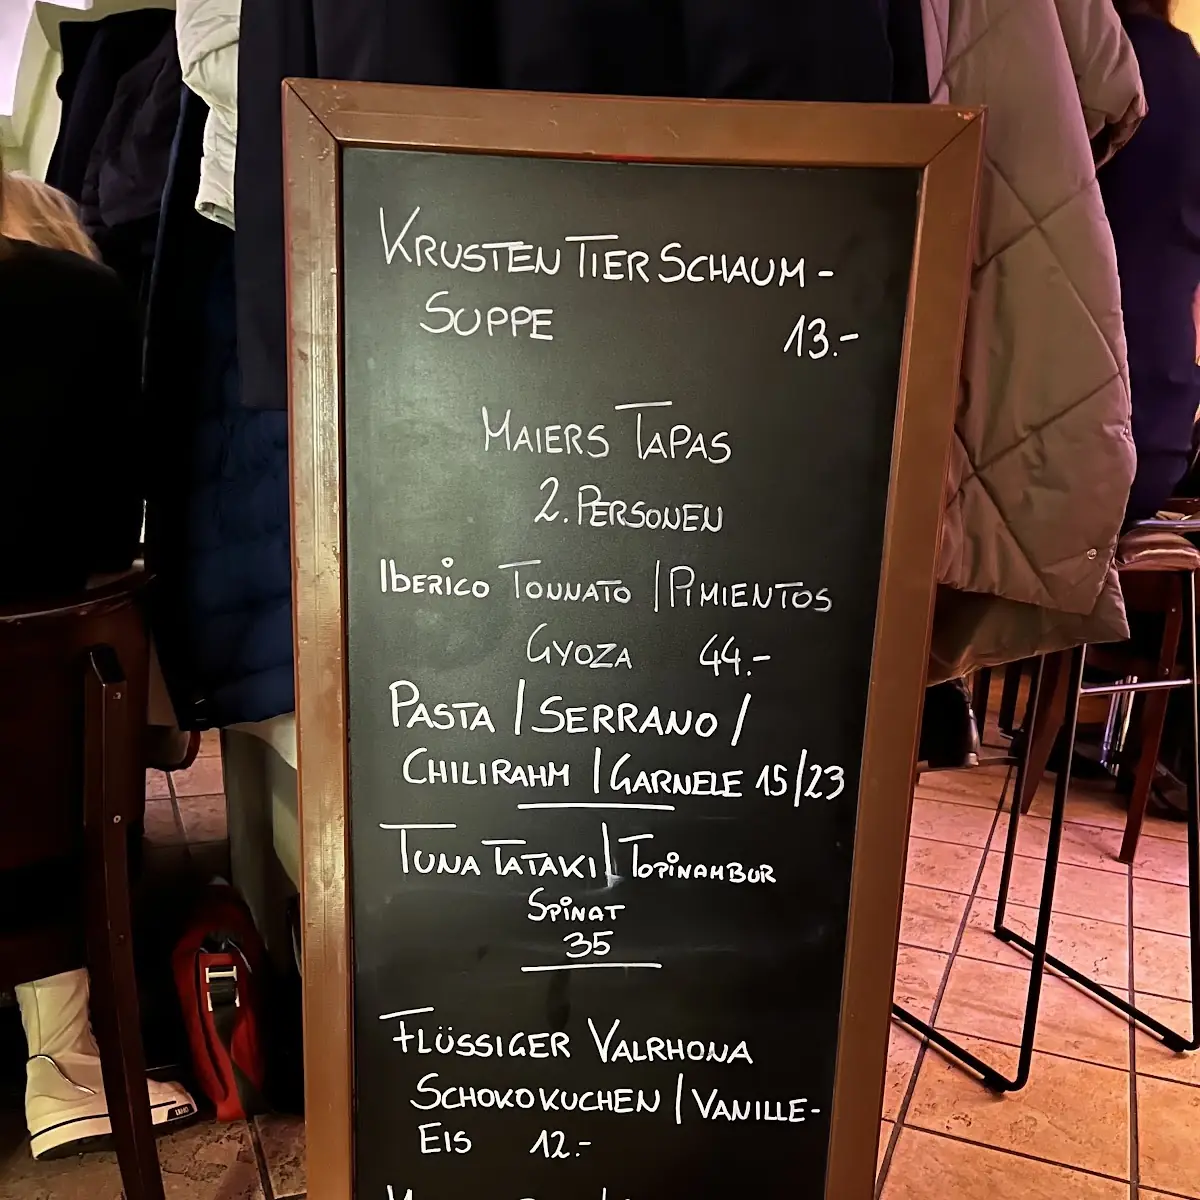 KRUSTENTIERSCHAUM-
SUPPE 13.-
MAIERS TAPAS
2. PERSONEN
IBERICO TONNATO | PIMIENTOS
GYOZA 44.-
PASTA / SERRANO /
CHILIRAHM / GARNELE 15/23
TUNA TATAKI | TOPINAMBUR
SPINAT
35
FLÜSSIGER VALRHONA
SCHOKOKUCHEN / VANILLE-
EIS 12.-